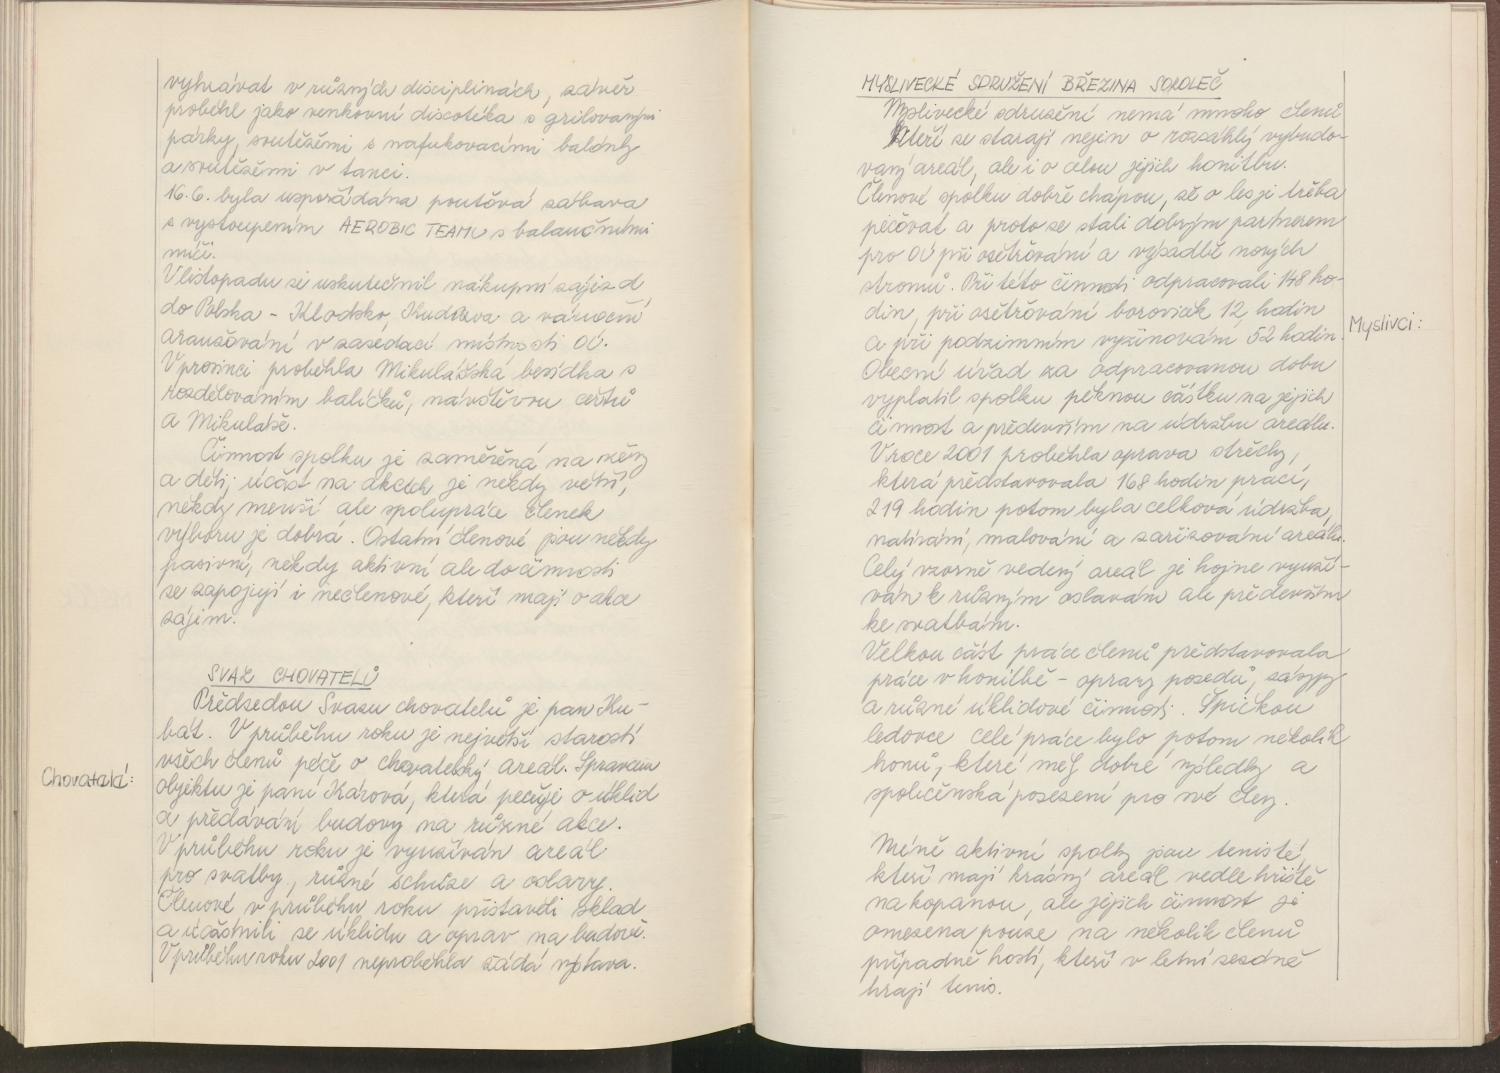 vyhrávat v různých disciplinách, závěr
proběhl jako venkovní discotéka s grilovanými
párky, soutěžemi s nafukovacími balónky
a soutěžemi v tanci.
16.6. byla uspořádána pouťová zábava
s vystoupením AEROBIC TEAMU s balančními
míči.
V listopadu se uskutečnil nákupní zájezd
do Polska - Klodsko, Kudowa a vánoční
aranžování v zasedací místnosti OÚ.
V prosinci proběhla Mikulášská besídka s
rozdělováním balíčků, návštěvou čertů
a Mikuláše.
Činnost spolku je zaměřená na ženy
a děti, účast na akcích je někdy větší,
někdy menší ale spolupráce členek
výboru je dobrá. Ostatní členové jsou někdy
pasivní, někdy aktivní ale do činnosti
se zapojují i nečlenové, kteří mají o akce
zájem.
SVAZ CHOVATELŮ
Předsedou Svazu chovatelů je pan Ku-
bát. V průběhu roku je největší starostí
všech členů péče o chovatelský areál. Správcem
Chovatelé:
objektu je paní Kárová, která pečuje o úklid
a předávání budovy na různé akce.
V průběhu roku je využíván areál
pro svatby, různé schůze a oslavy.
Členové v průběhu roku přistavěli sklad
a účastnili se úklidu a oprav na budově.
V průběhu roku 2001 neproběhla žádá výstava.
MYSLIVECKÉ SDRUŽENÍ BŘEZINA SOKOLEČ
Myslivecké sdružení nemá mnoho členů
kteří se starají nejen o rozsáhlý vybudo-
vaný areál, ale i o celou jejich honitbu.
Členové spolku dobře chápou, že o les je třeba
pečovat a proto se stali dobrým partnerem
pro OÚ při ošetřování a výsadbě nových
stromů. Při této činnosti odpracovali 148 ho-
din, při ošetřování borovicek 12 hodin
a při podzimním vyžínování 52 hodin.
Myslivci:
Obecní úřad za odpracovanou dobu
vyplatil spolku pěknou částku na jejich
činnost a především na údržbu areálu.
V roce 2001 proběhla oprava střechy,
která představovala 168 hodin prací,
219 hodin potom byla celková údržba,
natírání, malování a zařizování areálu.
Celý vzorně vedený areál je hojně využí-
ván k různým oslavám ale především
ke svatbám.
Velkou část práce členů představovala
práce v honitbě - opravy posedů, zásypy
a různé úklidové činnosti. Špičkou
ledovce celé práce bylo potom několik
honů, které měly dobré výsledky a
společenská posezení pro své členy.
Méně aktivní spolky jsou tenisté,
kteří mají krásný areál vedle hřiště
na kopanou, ale jejich činnost je
omezena pouze na několik členů
případně hostí, kteří v letní sezóně
hrají tenis.